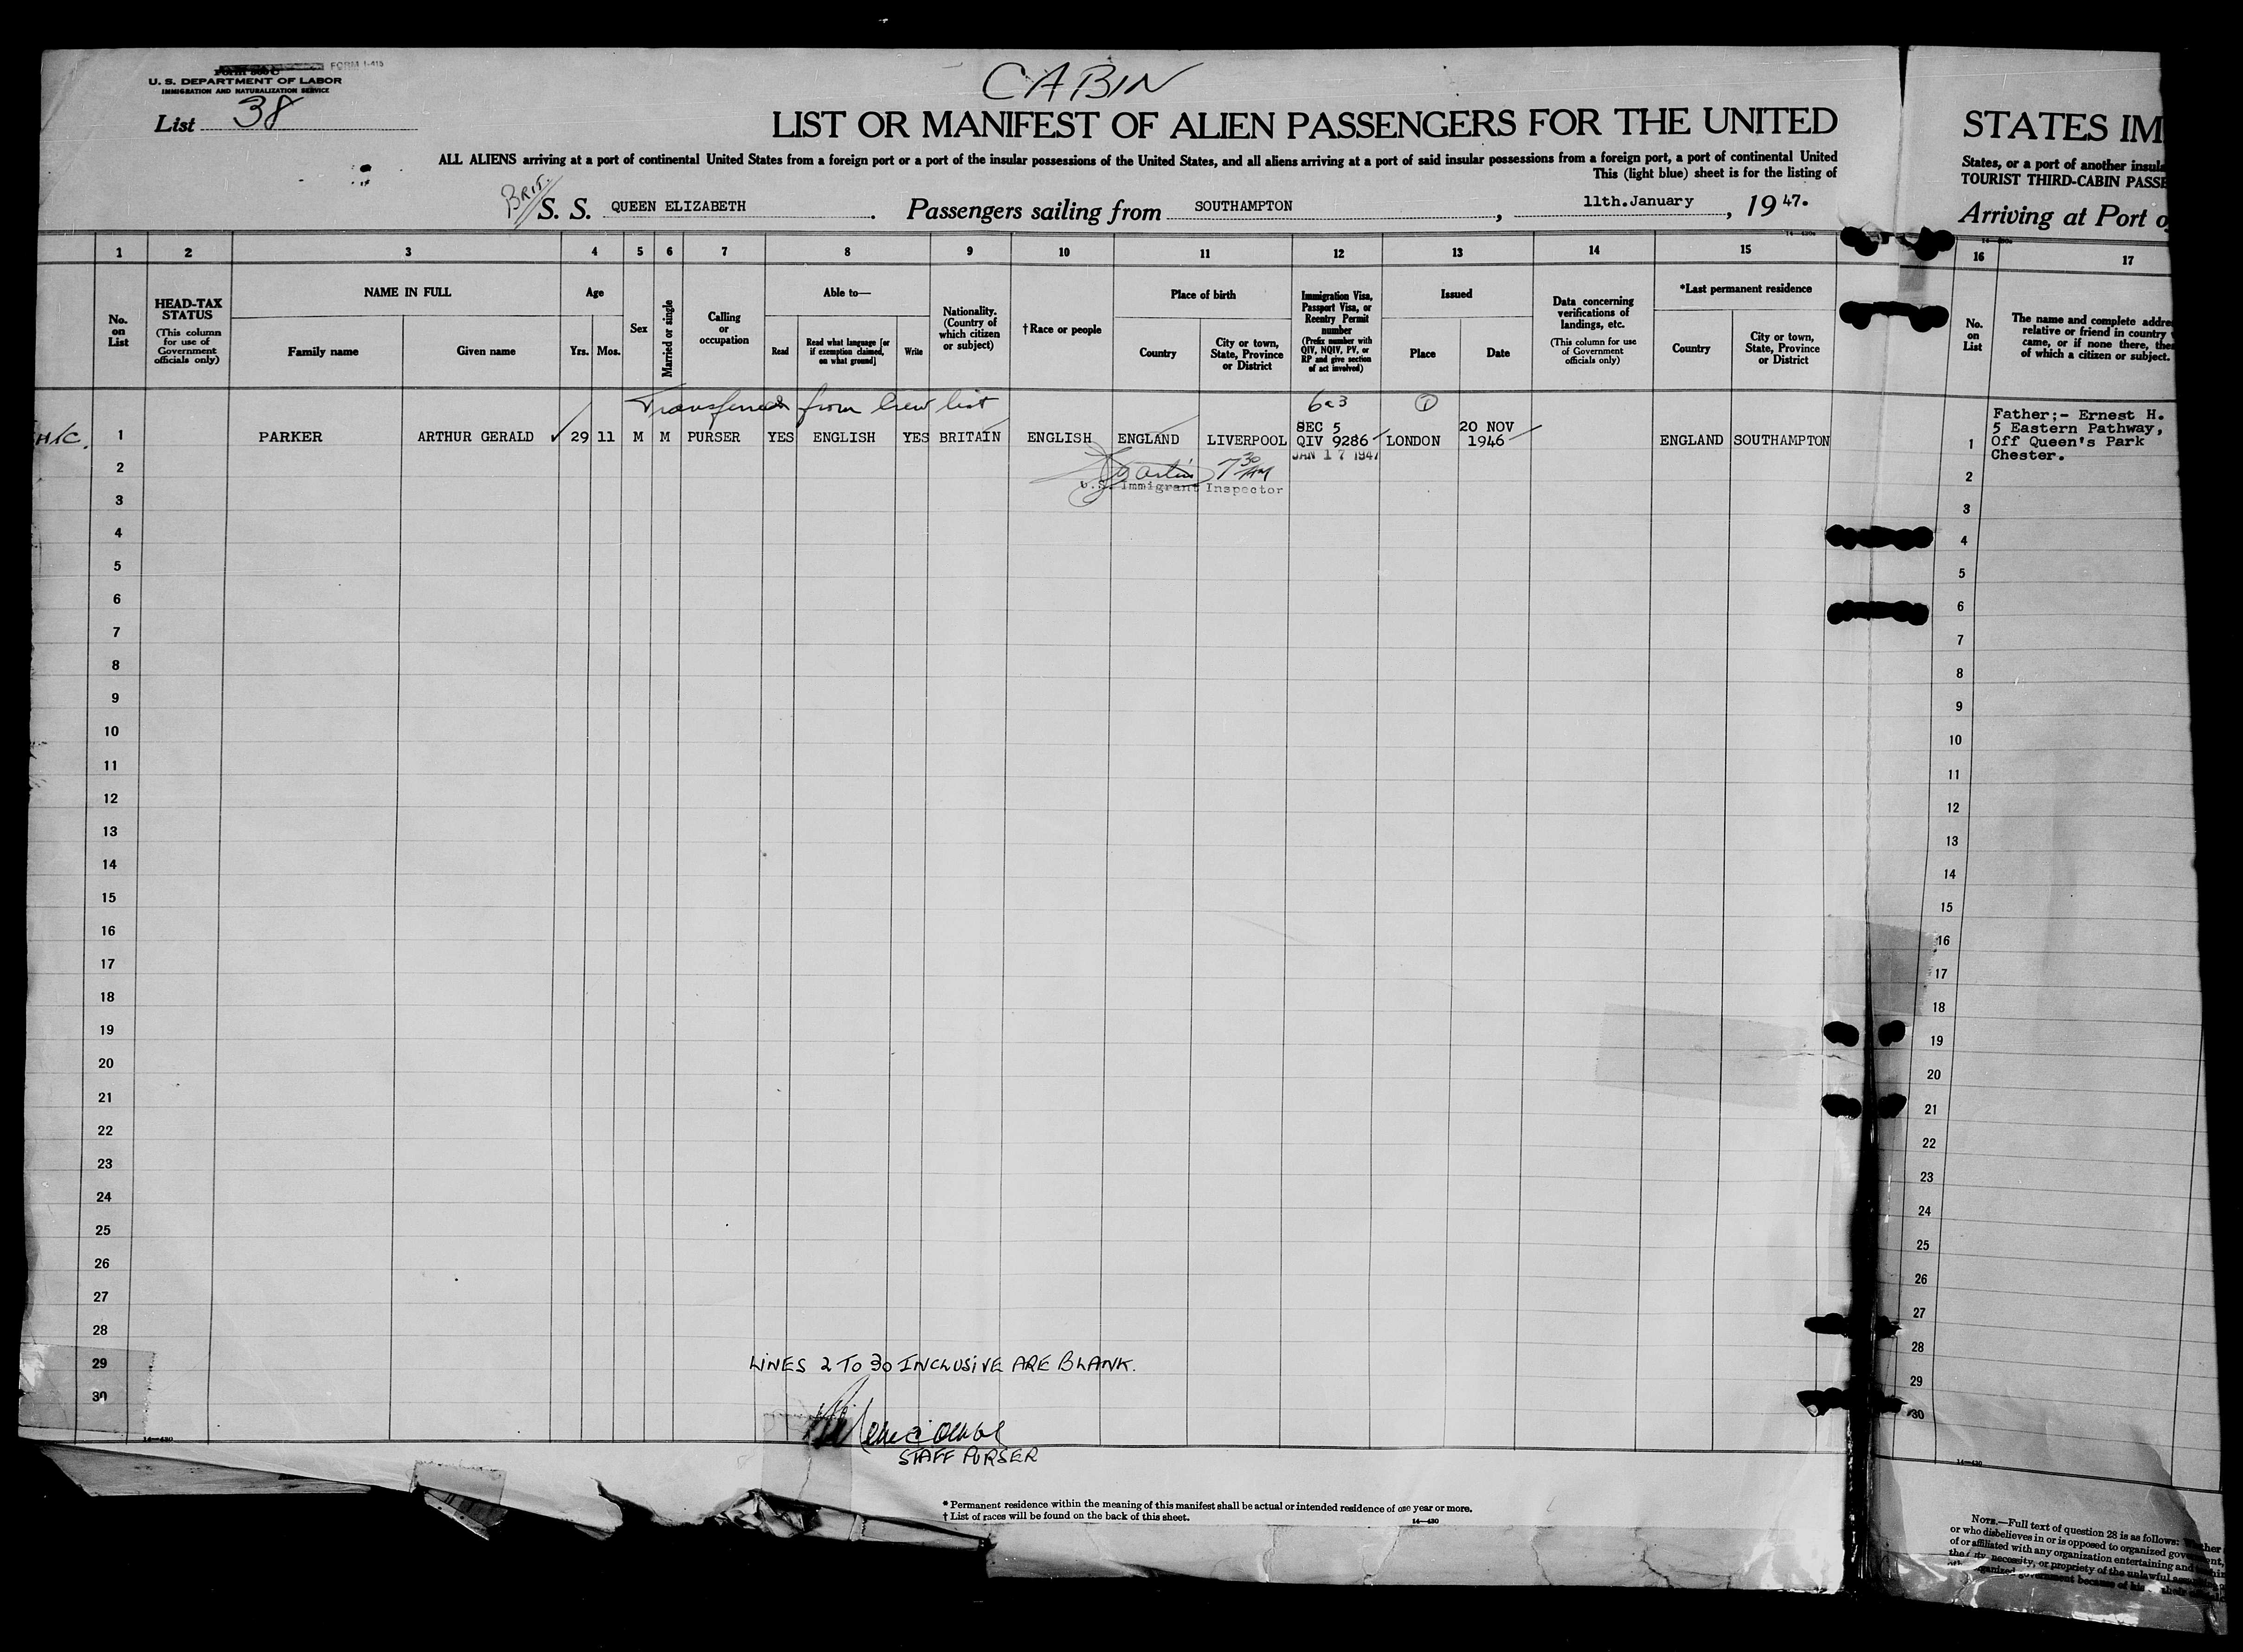 FORM I-415
U. S. DEPARTMENT OF LABOR
IMMIGRATION AND NATURALIZATION SERVICE
List 38
CABIN
LIST OR MANIFEST OF ALIEN PASSENGERS FOR THE UNITED
ALL ALIENS arriving at a port of continental United States from a foreign port or a port of the insular possessions of the United States, and all aliens arriving at a port of said insular possessions from a foreign port, a port of continental United
This (light blue) sheet is for the listing of
BRIT. S. S. QUEEN ELIZABETH. Passengers sailing from SOUTHAMPTON, 11th.January, 1947.
1 2 3 4 5 6 7 8 9 10 11 12 13 14 15
No. on List
HEAD-TAX STATUS
(This column for use of Government officials only)
NAME IN FULL
Family name Given name
Age
Yrs. Mos.
Sex
Married or single
Calling or occupation
Able to—
Read
Read what language [or if exemption claimed, on what ground]
Write
Nationality. (Country of which citizen or subject)
†Race or people
Place of birth
Country
City or town, State, Province or District
Immigration Visa, Passport Visa, or Reentry Permit number
(Prefix number with QIV, NQIV, PV, or RP and give section of act involved)
Issued
Place Date
Data concerning verifications of landings, etc.
(This column for use of Government officials only)
*Last permanent residence
Country
City or town, State, Province or District
Transferred from Crew list
6a3
SEC 5 20 NOV
1 PARKER ARTHUR GERALD 29 11 M M PURSER YES ENGLISH YES BRITAIN ENGLISH ENGLAND LIVERPOOL QIV 9286 LONDON 1946 ENGLAND SOUTHAMPTON
JAN 17 1947
7 30 AM
U.S. Immigrant Inspector
2
3
4
5
6
7
8
9
10
11
12
13
14
15
16
17
18
19
20
21
22
23
24
25
26
27
28
29
30
LINES 2 TO 30 INCLUSIVE ARE BLANK.
STAFF PURSER
14—430
* Permanent residence within the meaning of this manifest shall be actual or intended residence of one year or more.
† List of races will be found on the back of this sheet.
14—430
STATES IM
States, or a port of another insula
TOURIST THIRD-CABIN PASSE
Arriving at Port o
16 17
No. on List
The name and complete addre
relative or friend in country
came, or if none there, the
of which a citizen or subject.
Father:- Ernest H.
5 Eastern Pathway,
1 Off Queen's Park
Chester.
2
3
4
5
6
7
8
9
10
11
12
13
14
15
16
17
18
19
20
21
22
23
24
25
26
27
28
29
30
14—430
NOTE.—Full text of question 28 is as follows: Whether
or who disbelieves in or is opposed to organized government,
of or affiliated with any organization entertaining and
necessity, or propriety of the unlawful
government because of his